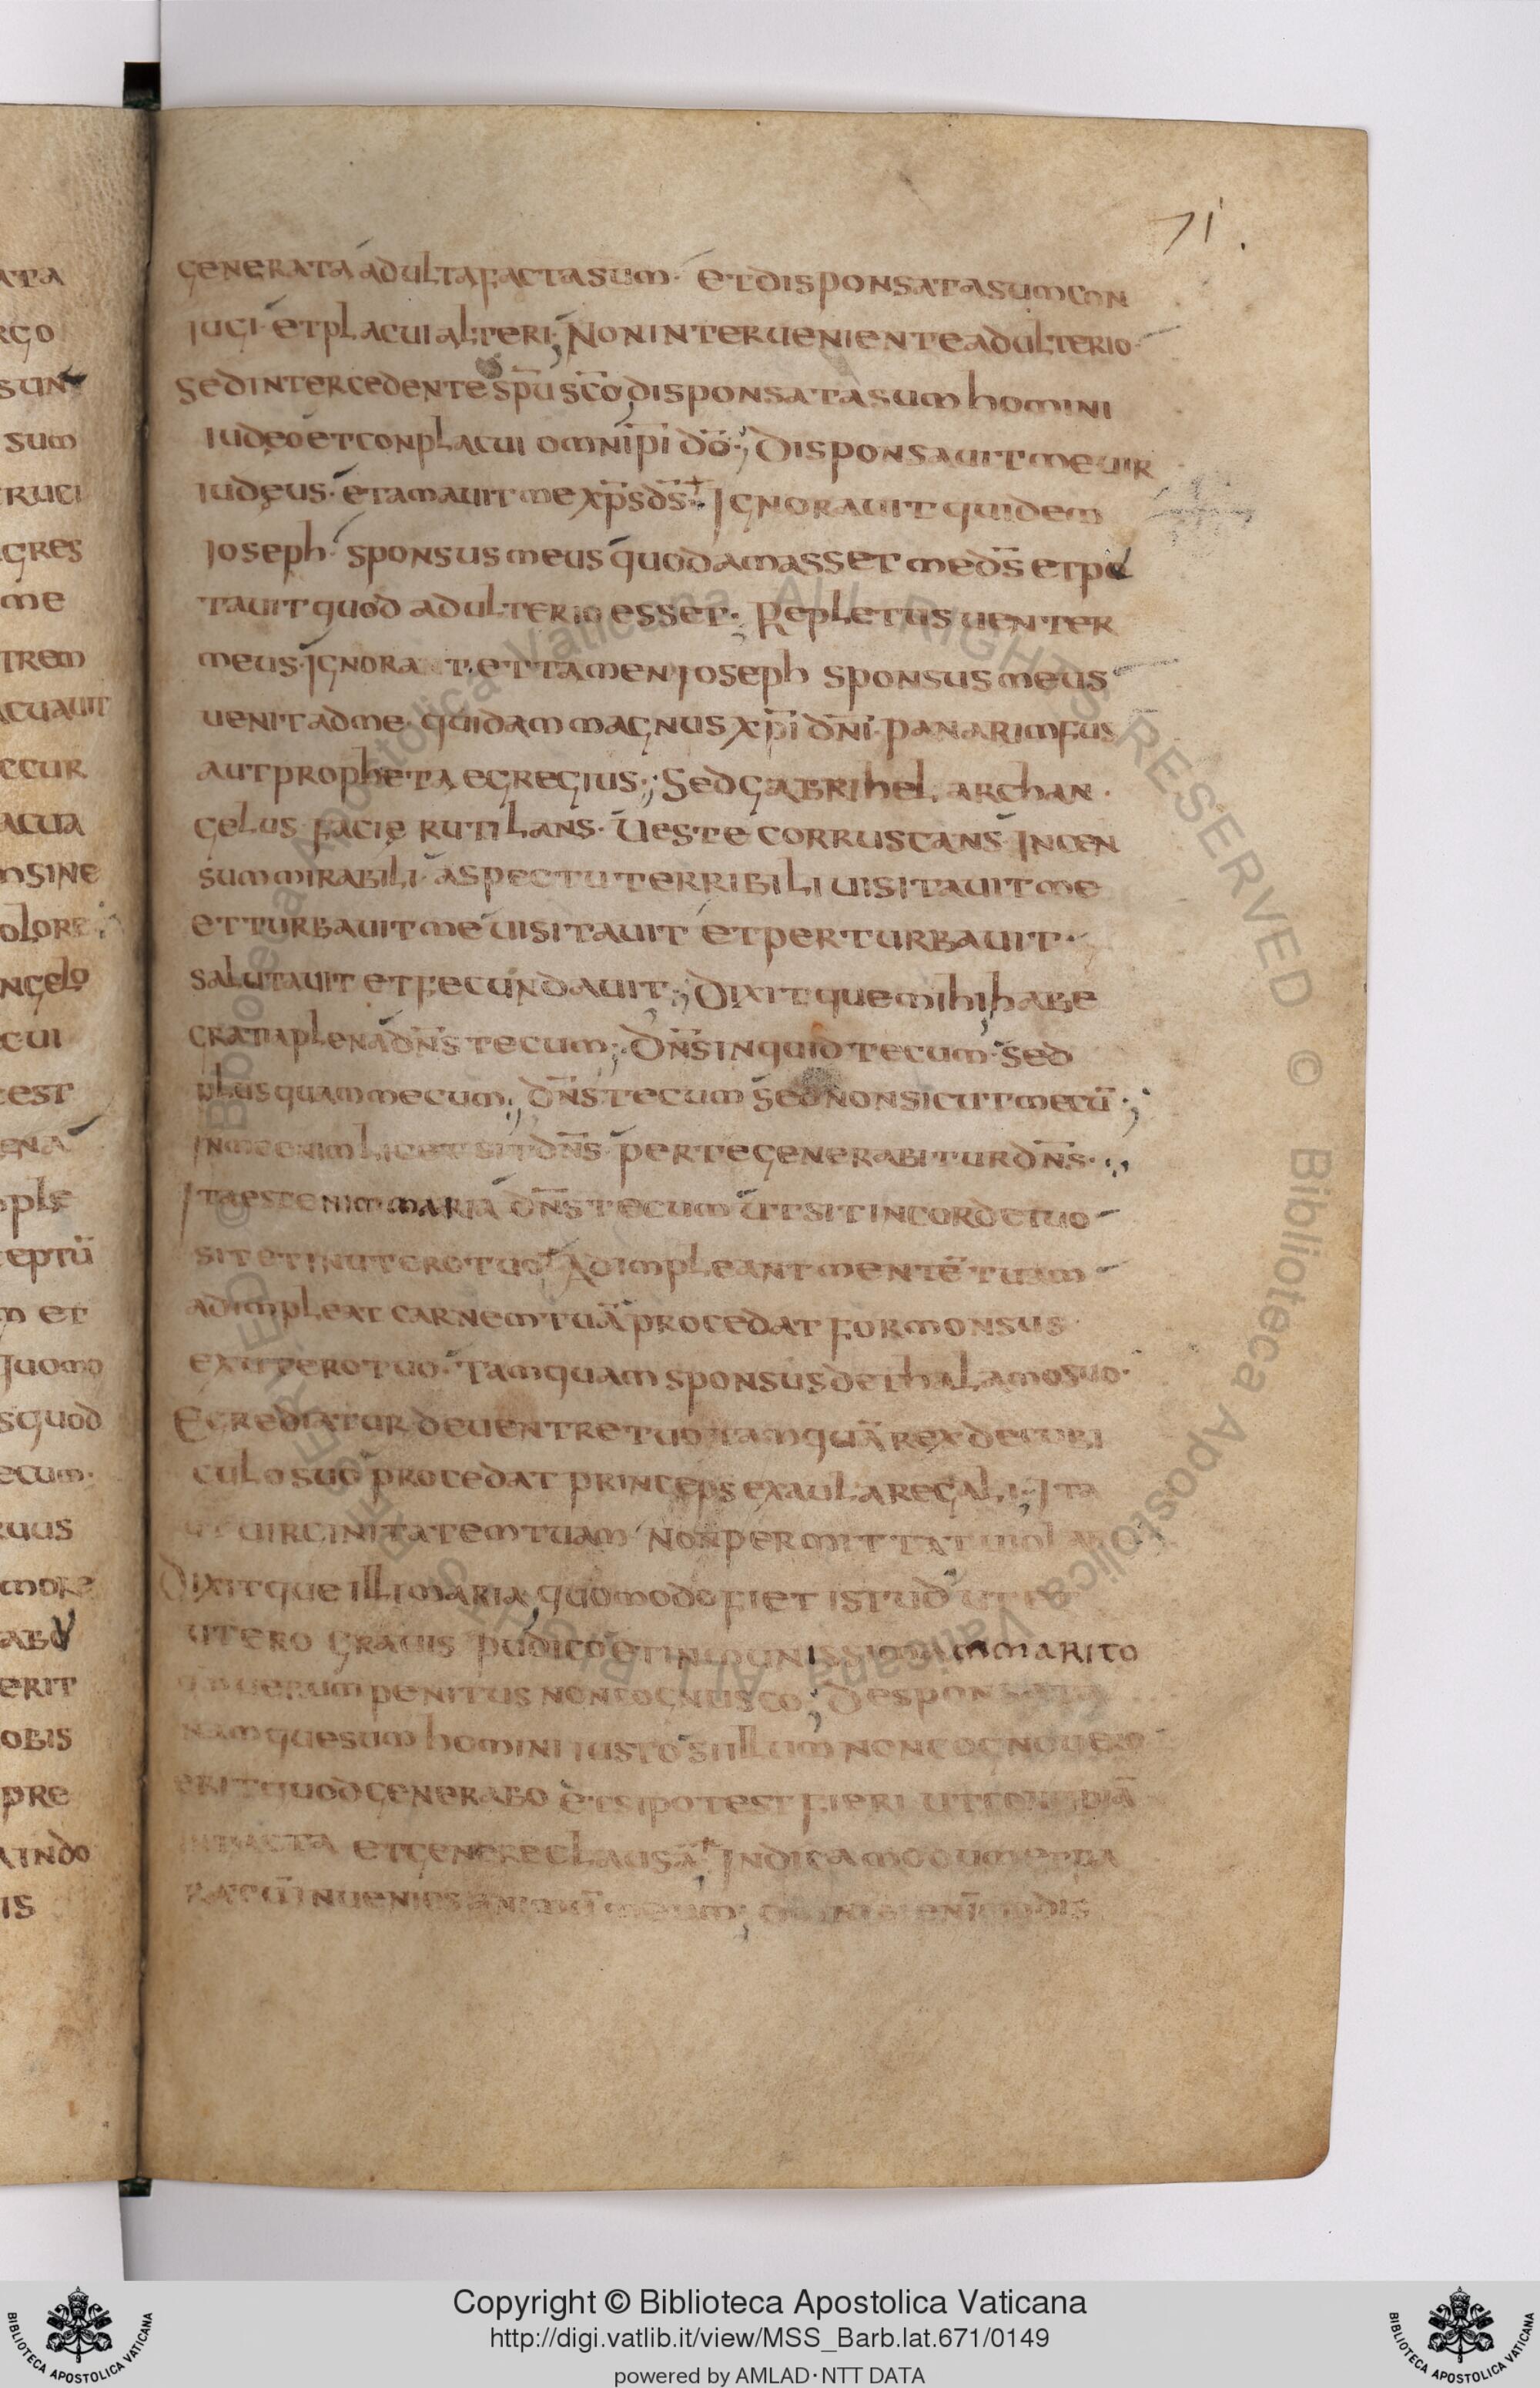 71.
generata adulta facta sum· et disponsata sum con
iugi· et placui alteri; Non interueniente adulterio·
Sed intercedente sp̄u sc̄o; disponsata sum homini
iudeo et conplacui omnip̄i dō·; Disponsauit me uir
iudęus· et amauit me xp̄s ds̄· Ignorauit quidem
ioseph· sponsus meus quod amasset me ds̄ et pu
tauit quod adulterio esset· Repletus uenter
meus· ignora t. et tamen ioseph sponsus meus
uenit ad me· quidam magnus xp̄i dn̄i· panarimfus
aut propheta egregius·; Sed gabrihel archan·
gelus facie rutilans· Ueste corruscans· Incen
sum mirabili· aspectu terribili uisitauit me
et turbauit me uisitauit et perturbauit·
salutauit et fecundauit·; Dixitque mihi; habe
gratia plena dn̄s tecum·; Dn̄s inquid tecum· sed
plus quam mecum; dn̄s tecum sed non sicut mecū·;
In me enim licet sit dn̄s· per te generabitur dn̄s·
Ita est enim maria dn̄s tecum ut sit in corde tuo
sit et in utero tuo· Adimpleant mentē tuam
adimpleat carnem tuā procedat formonsus
ex utero tuo· tamquam sponsus de thalamo suo·
Egrediatur de uentre tuo tamquā rex de cubi
culo suo procedat princeps ex aula regali·; Ita
ut uirginitatem tuam non permittat uiolari
Dixitque illi maria; quomodo fiet istud ut
utero grauis pudico et marito
uerum penitus non cognusco; Desponsata
namque sum homini iusto si illum non cognouero
erit quod generabo et si potest fieri ut concipiā
intacta et genere clausa· Indica modum
inuenies animū meum;
Copyright © Biblioteca Apostolica Vaticana
http://digi.vatlib.it/view/MSS_Barb.lat.671/0149
powered by AMLAD·NTT DATA